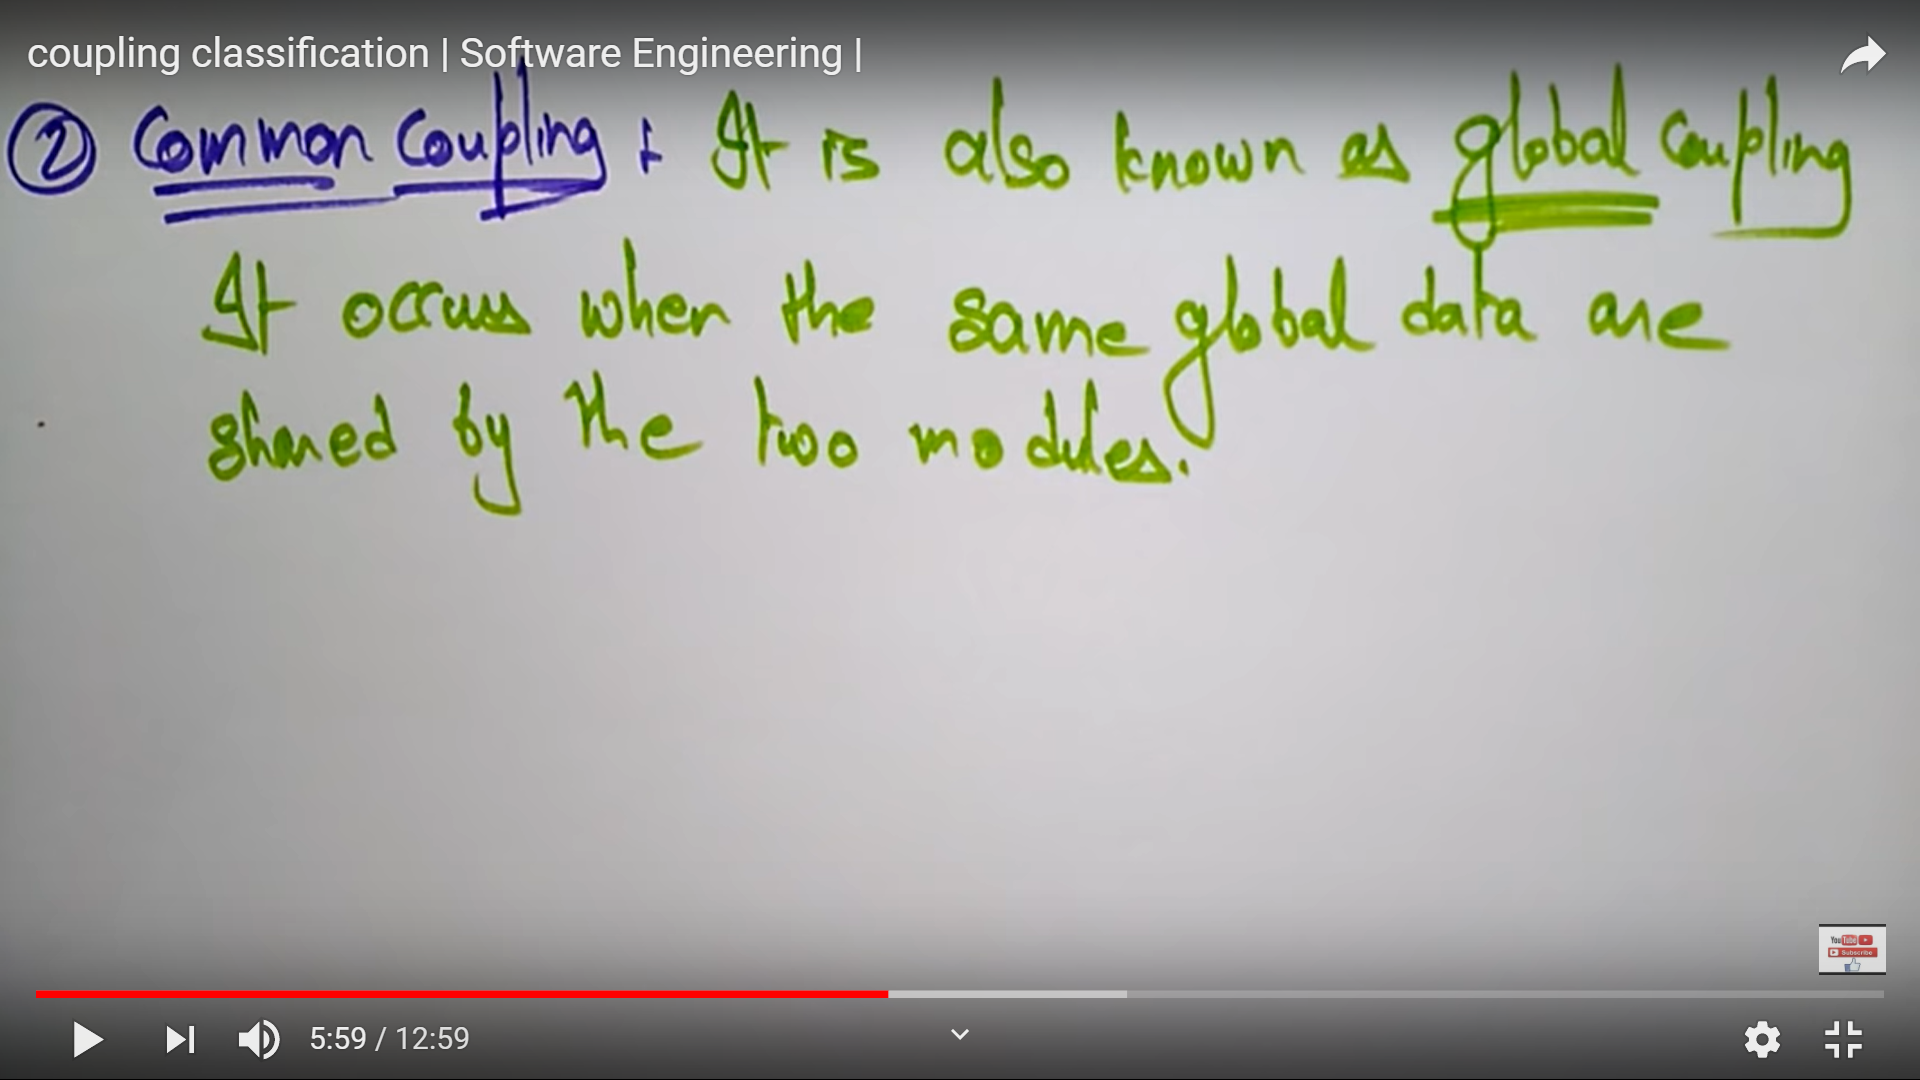 coupling classification | Software Engineering |
② Common Coupling : It is also known as global coupling
It occurs when the same global data are
shared by the two modules.
YouTube
Subscribe
5:59 / 12:59